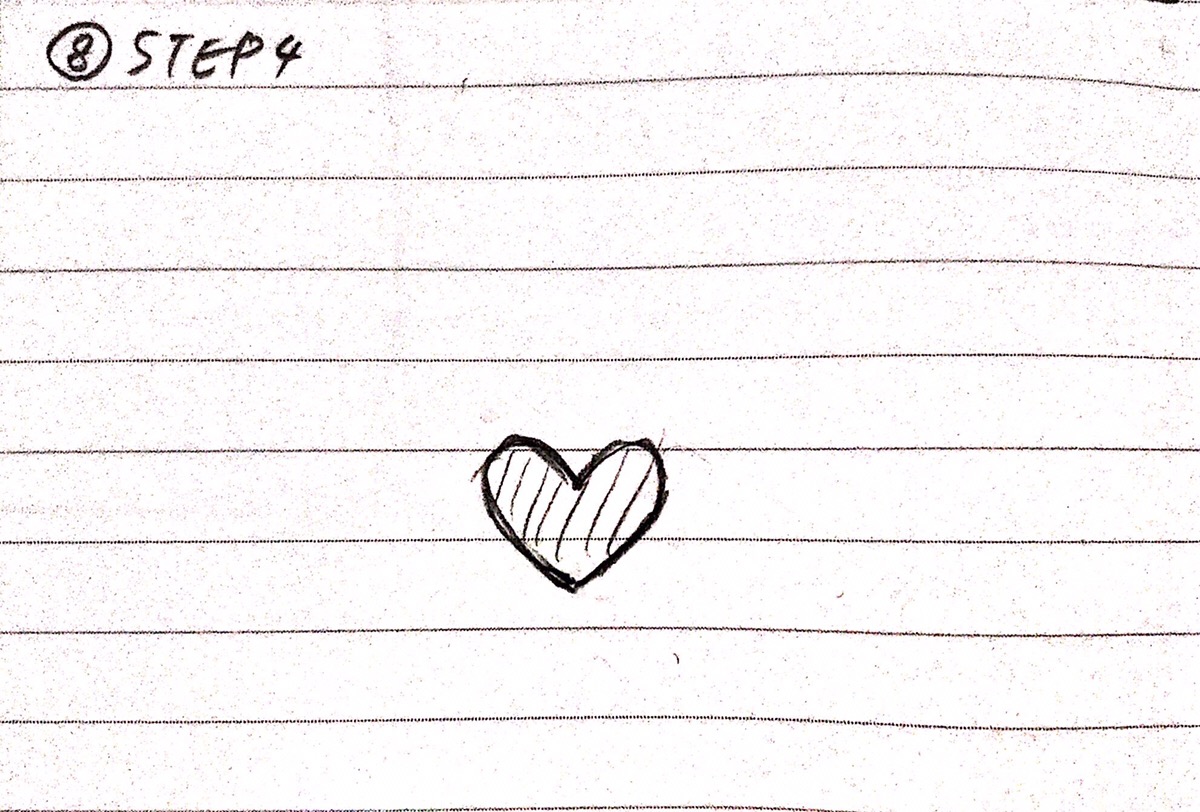 ⑧ STEP4